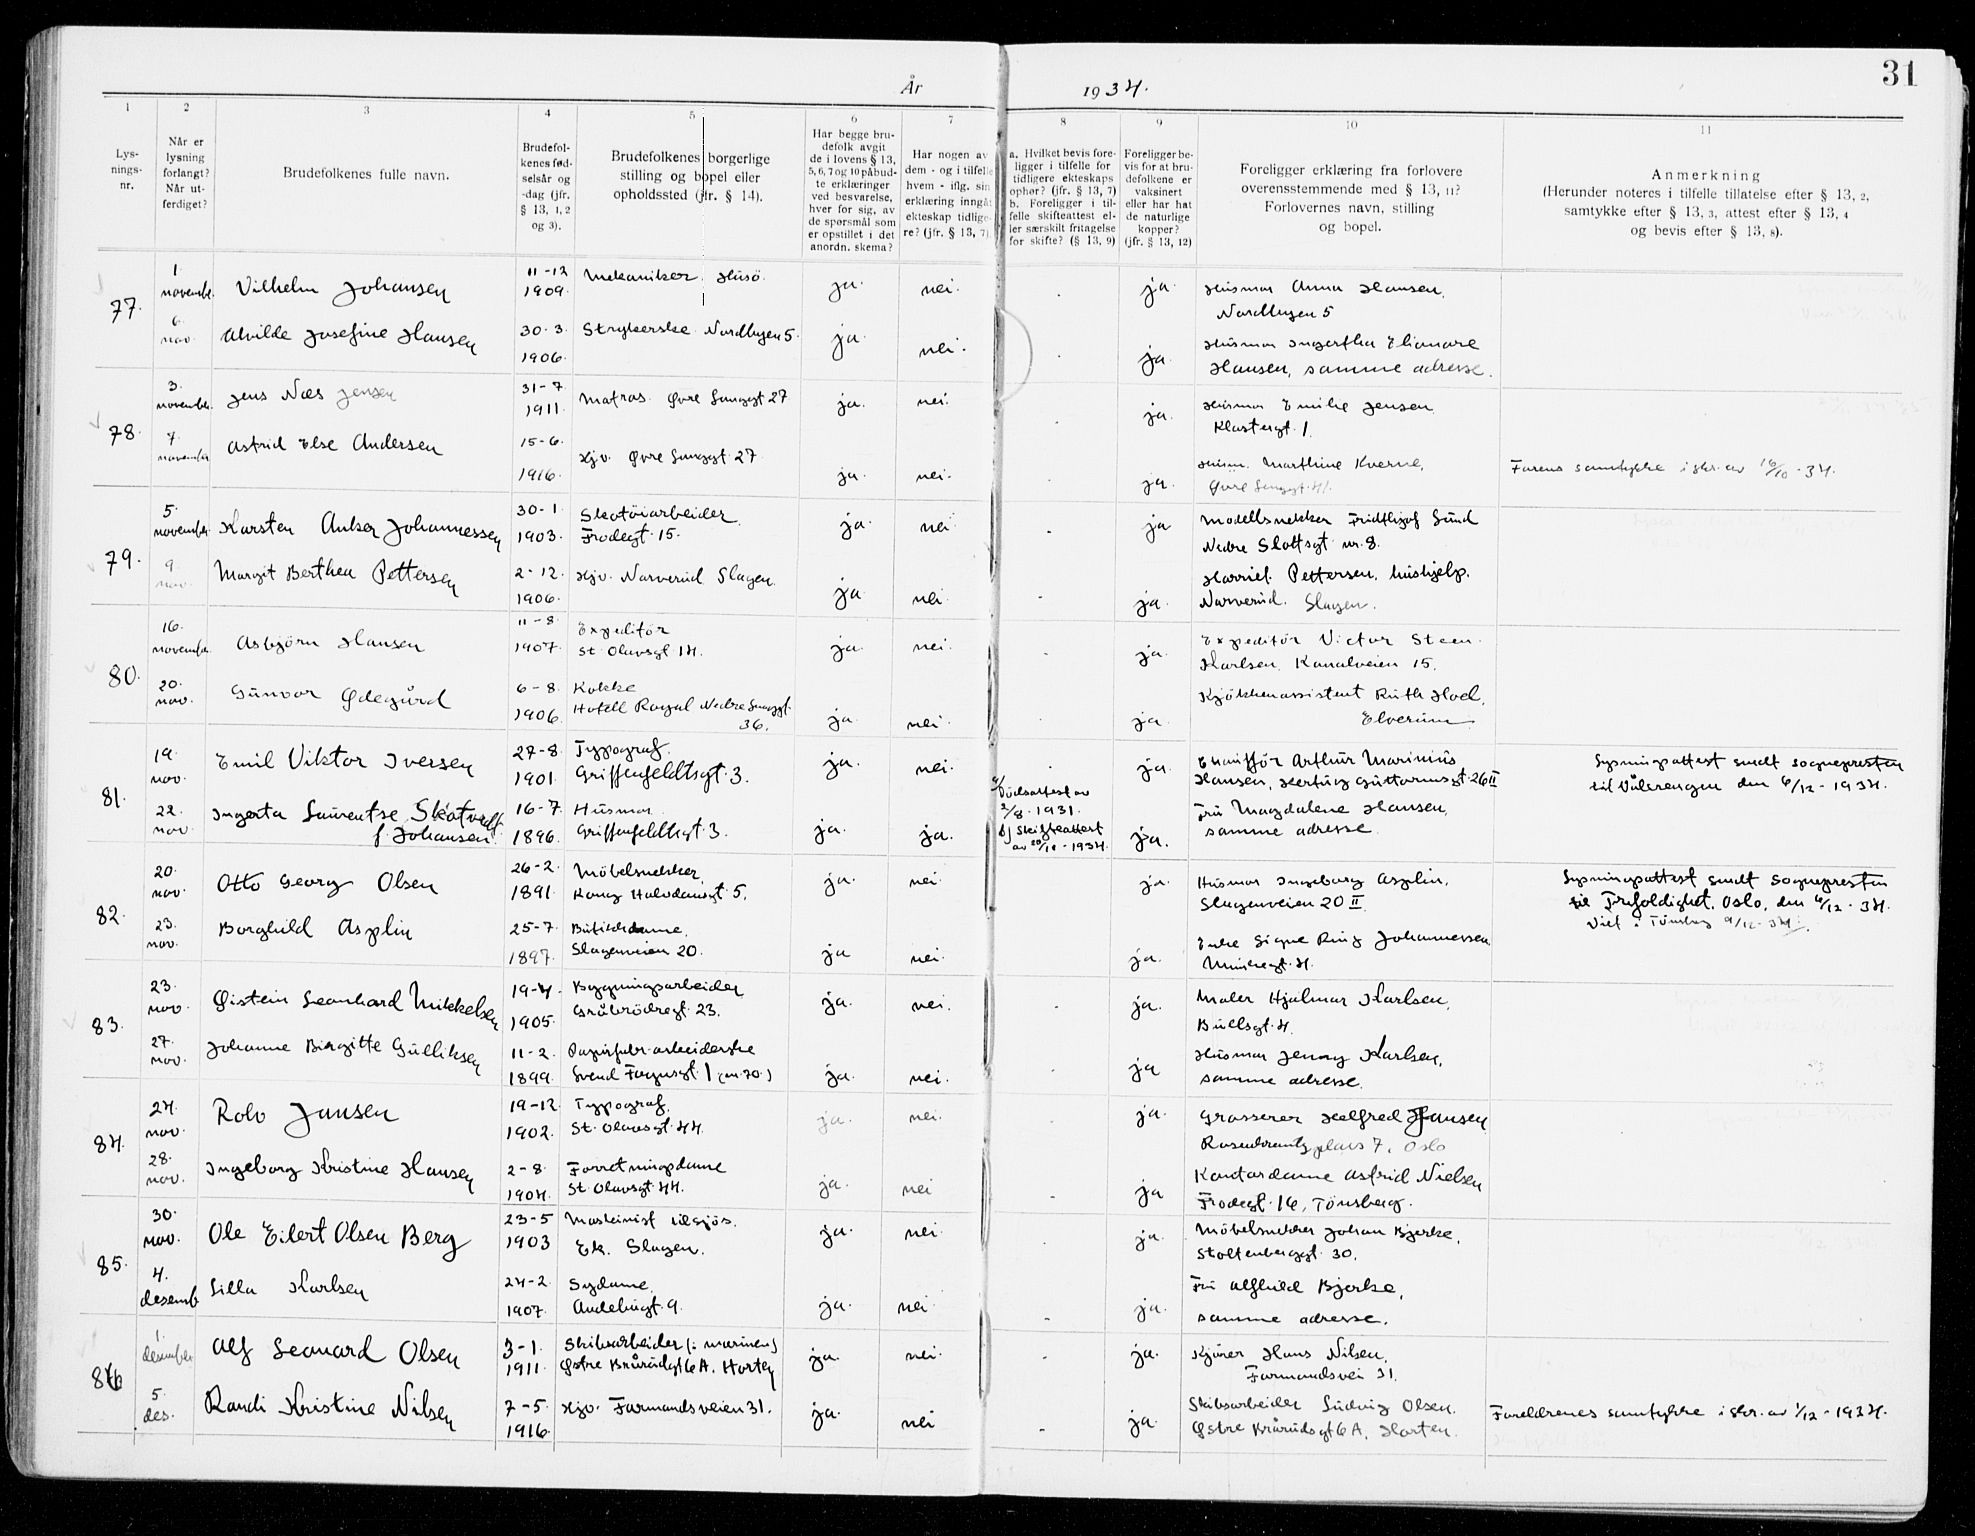 31
År 1934.
1 2 3 4 5 6 7 8 9 10 11
Lys-
nings-
nr.
Når er
lysning
forlangt?
Når ut-
ferdiget?
Brudefolkenes fulle navn.
Brudefol-
kenes fød-
selsår og
-dag (jfr.
§ 13, 1, 2
og 3).
Brudefolkenes borgerlige
stilling og bopel eller
opholdssted (jfr. § 14).
Har begge bru-
defolk avgit
de i lovens § 13,
5, 6, 7 og 10 påbud-
te erklæringer
ved besvarelse,
hver for sig, av
de spørsmål som
er opstillet i det
anordn. skema?
Har nogen av
dem - og i tilfelle
hvem - iflg. sin
erklæring inngåt
ekteskap tidlige-
re? (jfr. § 13, 7)
a. Hvilket bevis fore-
ligger i tilfelle for
tidligere ekteskaps
ophør? (jfr. § 13, 7)
b. Foreligger i til-
felle skifteattest el-
ler særskilt fritagelse
for skifte? (§ 13, 9)
Foreligger be-
vis for at bru-
defolkene er
vaksinert
eller har hat
de naturlige
kopper?
(jfr. § 13, 12)
Foreligger erklæring fra forlovere
overensstemmende med § 13, 11?
Forlovernes navn, stilling
og bopel.
Anmerkning
(Herunder noteres i tilfelle tillatelse efter § 13, 2,
samtykke efter § 13, 3, attest efter § 13, 4
og bevis efter § 13, 8).
77. 1. novembr. Vilhelm Johansen 11-12 1909. Mekaniker Husö. ja. nei. ja. Husmor Anna Hansen,
Nordbyen 5
6. nov. Alvilde Josefine Hansen 30-3. 1906. Strykerske Nordbyen 5. ja. nei. ja. Husmor Ingertha Elianore
Hansen, samme adresse.
78. 3. november. Jens Næs Jensen 31-7 1911. Matros. Øvre Langgt 27 ja. nei. ja. Husmor Emilie Jensen
Klostergt. 1.
7. november Astrid Else Andersen 15-6. 1916. Hjv. Øvre Langgt. 27 ja. nei. ja. Husm. Marthine Kverne,
Øvre Langgt. 41. Farens samtykke i skr. av 16/10-34.
79. 5. november. Karsten Anker Johannessen 30-1. 1903. Skotöiarbeider.
Frodegt. 15. ja. nei ja Modellsnekker Fridthjof Lund
Nedre Slottsgt nr. 8.
9. nov. Margit Berthea Pettersen 2-12. 1906. Hjv. Narverud Slagen. ja. nei. ja. Harriet Pettersen, hushjelp.
Narverud. Slagen.
80. 16. november. Asbjörn Hansen 11-8. 1907. Expeditör
St. Olavsgt 14. ja. nei. ja. Expeditör Victor Steen
Karlsen, Kanalveien 15.
20. nov. Gunvor Ødegård 6-8. 1906. Kokke
Hotell Royal Nedre Langgt.
36. ja. nei. ja. Kjökkenassistent Ruth Hoel,
Elverum
81. 19. nov. Emil Viktor Iversen 27-8. 1901. Typograf.
Griffenfeldtsgt. 3. ja. nei. ja. Chaufför Arthur Marinius
Hansen, Hertug Guttormsgt. 26 II Lysningsattest sendt sogneprest­en
til Vålerengen den 6/12-1934.
22. nov. Ingerta Laurentse Skotvedt
f. Johansen. 16-7 1896. Husmor.
Griffenfeldtsgt. 3. ja. ja. a/ Dödsattest av
2/8-1931.
b/ Skifteattest
av 20/10-1934. ja. Fru Magdalene Hansen,
samme adresse.
82. 20. nov. Otto Georg Olsen 26-2. 1891. Möbelsnekker.
Kong Halvdansgt 5. ja. nei. ja. Husmor Ingeborg Asplin,
Slagenveien 20 II Lysningsattest sendt sognepresten
til Trefoldighet, Oslo, den 6/12-34.
Viet i Tönsberg 9/12-34.
23. nov. Borghild Asplin 25-7. 1897. Butikkdame.
Slagenveien 20. ja nei. ja. Enke Signe Ring Johannessen
Munkegt. 4.
83. 23. nov. Øistein Leonhard Mikkelsen 19-4. 1905. Bygningsarbeider
Gråbrödregt. 23. ja. nei. ja. Maler Hjalmar Karlsen,
Bullsgt. 4.
27. nov. Johanne Birgitte Gulliksen 11-2. 1899. Papirfabr.arbeiderske
Svend Foynsgt. 1 (nr. 70.) ja. nei. ja Husmor Jenny Karlsen,
samme adresse.
84. 24. nov. Rolv Jansen 19-12 1902. Typograf.
St. Olavsgt. 44. ja. nei. ja. Grosserer Helfred Jansen
Rosenkrantz plass 7, Oslo
28. nov. Ingeborg Kristine Hansen 2-8. 1904. Forretningsdame
St. Olavsgt. 44. ja. nei ja Kontordame Astrid Nielsen
Frodegt. 16, Tönsberg.
85. 30. nov. Ole Eilert Olsen Berg 23-5 1903 Maskinist tilsjös.
Ek. Slagen. ja. nei. ja. Möbelsnekker Johan Bjerke,
Stoltenberggt. 30.
4. desemb Lilla Karlsen 24-2. 1907. Sydame.
Andebugt. 9. ja. nei ja. Fru Alfhild Bjerke,
samme adresse.
86 1. desember Alf Leonard Olsen 3-1. 1911. Skibsarbeider (i marinen)
Østre Brårudgt 6 A. Horten ja. nei. ja. Kjörer Hans Nilsen,
Farmandsvei 31.
5. des. Randi Kristine Nilsen 7-5. 1916. Hjv. Farmandsveien 31. ja. nei ja. Skibsarbeider Ludvig Olsen.
Østre Brårudsgt 6 A, Horten. Foreldrenes samtykke i skr. av 1/12-1934.